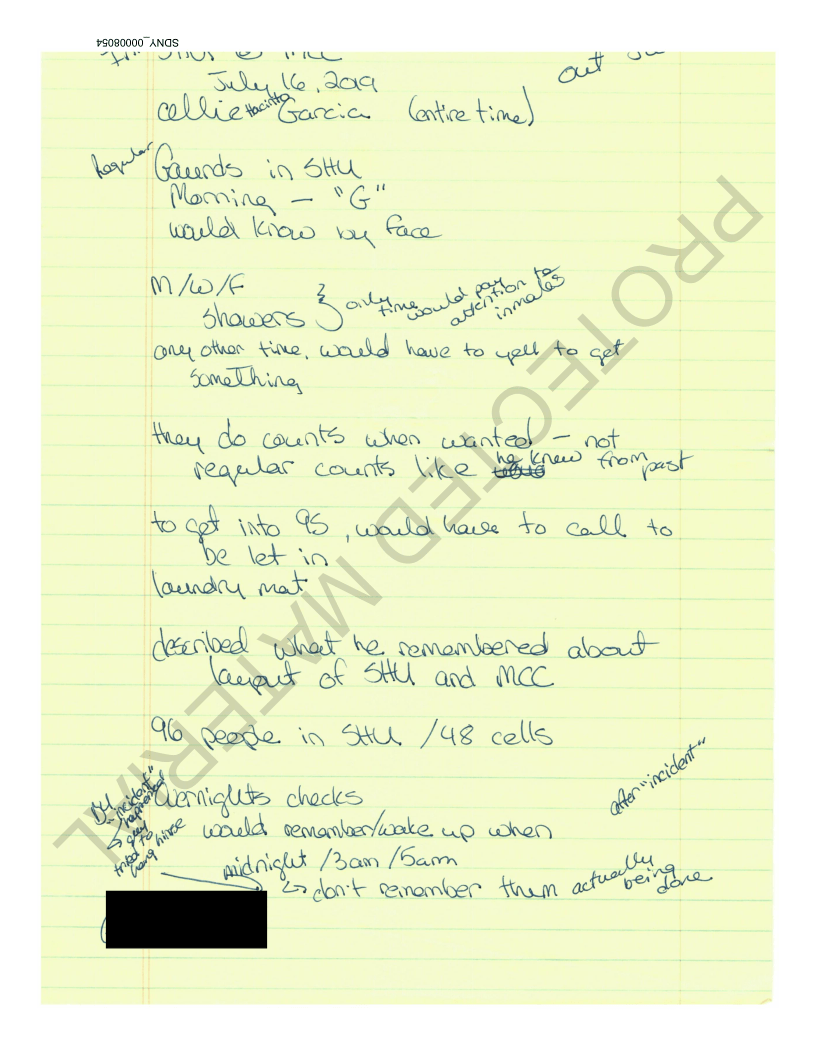 SDNY_00008054
July 16, 2019
out
cellie Hacinto Garcia (entire time)
Regular Gaurds in SHU
Morning - "G"
would know by face
M/W/F
Showers } only time would pay attention to inmates
any other time, would have to yell to get
something
they do counts when wanted - not
regular counts like he knew from past
to get into 95, would have to call to
be let in
laundry mat
described what he remembered about
layout of SHU and MCC
96 people in SHU /48 cells
after "incident"
"incident"
happened
↳ guy
tried to
hang himse
Overnights checks
would remember/wake up when
midnight /3am /5am
↳ don't remember them actually being done
PROTECTED MATERIAL